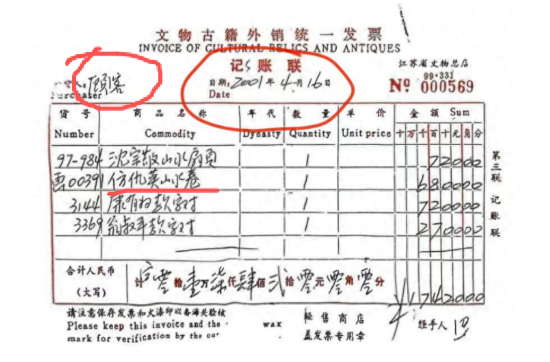 文物古籍外销统一发票
INVOICE OF CULTURAL RELICS AND ANTIQUES
记账联
江苏省文物总店
顾客
Purchaser
日期:2001年4月16日
Date
99-331
No 000569
货号 商品名称 年代 数量 单价 金额 Sum
Number Commodity Dynasty Quantity Unit price 十万千百十元角分
97-984 沈宗骞山水扇页 1 72000
画00391 仿仇英山水卷 1 680000
3144 康有为款字对 1 720000
3369 翁叔平款字对 1 270000
第三联 记账联
合计人民币
(大写)
计 拾壹万柒仟肆佰贰拾零元零角零分
1742000
请注意保存发票和火漆印以备海关验核
Please keep this invoice and the wax
mark for verification by the
经售商店
盖发票专用章
经手人